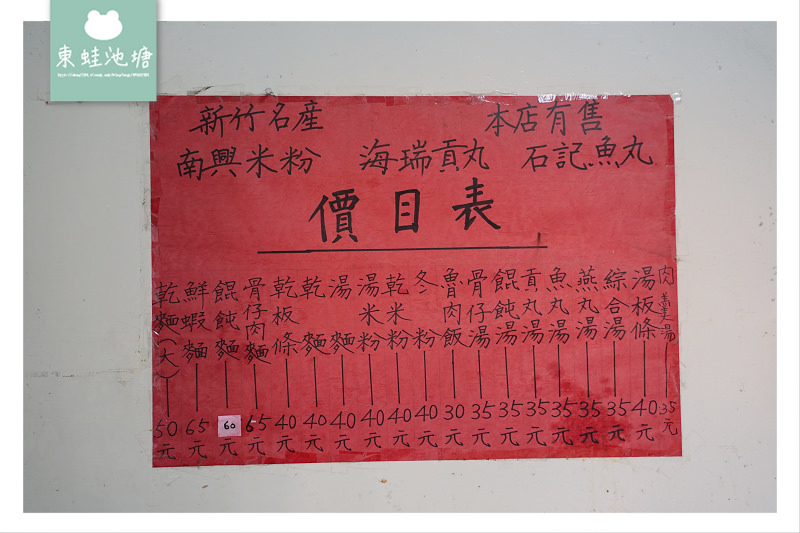 東蛙池塘
新竹名產 本店有售
南興米粉 海瑞貢丸 石記魚丸
價目表
肉羹湯 35元
湯板條 40元
綜合湯 35元
燕丸湯 35元
魚丸湯 35元
貢丸湯 35元
餛飩湯 35元
骨仔湯 35元
魯肉飯 30元
冬粉 40元
乾米粉 40元
湯米粉 40元
湯麵 40元
乾麵 40元
乾板條 40元
骨仔肉麵 65元
餛飩麵 60元
鮮蝦麵 65元
乾麵(大) 50元